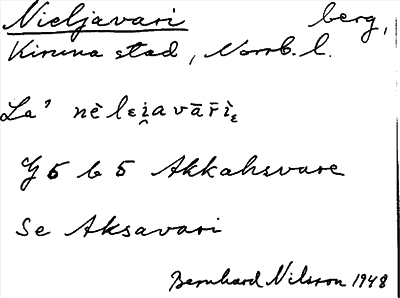 Nieljavari berg,
Kiruna stad, Norrb. l.
La' nèlɛi̯avār̄ìɛ
G 5 b 5 Akkahsvare
Se Aksavari
Bernhard Nilsson 1948